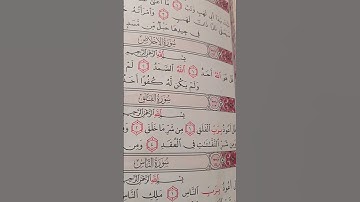 وَتَبَّ ۝ مَا أَغْنَىٰ عَنْهُ
ذَاتَ لَهَبٍ ۝ وَامْرَأَتُهُ
فِي جِيدِهَا حَبْلٌ مِّن
سُورَةُ الإِخْلَاصِ
بِسْمِ اللَّهِ الرَّحْمَٰنِ الرَّحِيمِ
هُوَ اللَّهُ أَحَدٌ ۝ اللَّهُ الصَّمَدُ ۝ لَمْ
وَلَمْ يَكُن لَّهُ كُفُوًا أَحَدٌ
سُورَةُ الفَلَقِ
بِسْمِ اللَّهِ الرَّحْمَٰنِ الرَّحِيمِ
أَعُوذُ بِرَبِّ الْفَلَقِ ۝ مِن شَرِّ مَا خَلَقَ ۝ وَ
شَرِّ النَّفَّاثَاتِ فِي الْعُقَدِ ۝ وَمِن
سُورَةُ النَّاسِ
بِسْمِ اللَّهِ الرَّحْمَٰنِ الرَّحِيمِ
أَعُوذُ بِرَبِّ النَّاسِ ۝ مَلِكِ النَّاسِ